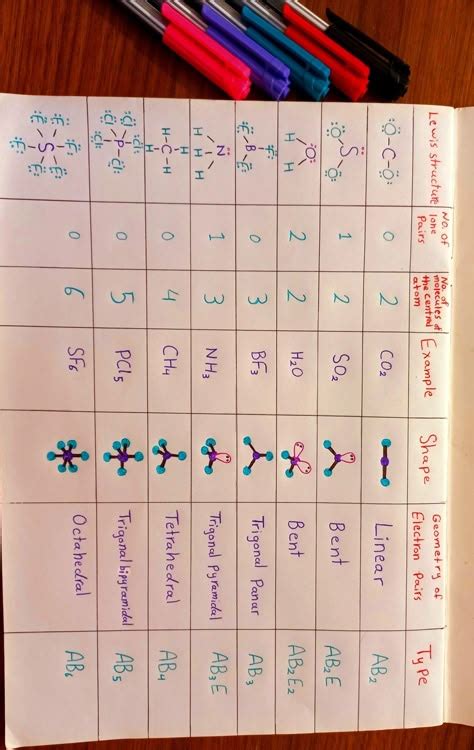 Lewis structure
No. of
lone
pairs
No. of
molecules of
the central
atom
Example
Shape
Geometry of
Electron Pairs
Type
O-C-O
0
2
CO₂
Linear
AB₂
S
O O
1
2
SO₂
Bent
AB₂E
O
H H
2
2
H₂O
Bent
AB₂E₂
F
B
F F
0
3
BF₃
Trigonal Panar
AB₃
N
H H H
1
3
NH₃
Trigonal pyramidal
AB₃E
H
H-C-H
H
0
4
CH₄
Tetrahedral
AB₄
Cl Cl
P-Cl
Cl Cl
0
5
PCl₅
Trigonal bipyramidal
AB₅
F F F
S
F F F
0
6
SF₆
Octahedral
AB₆